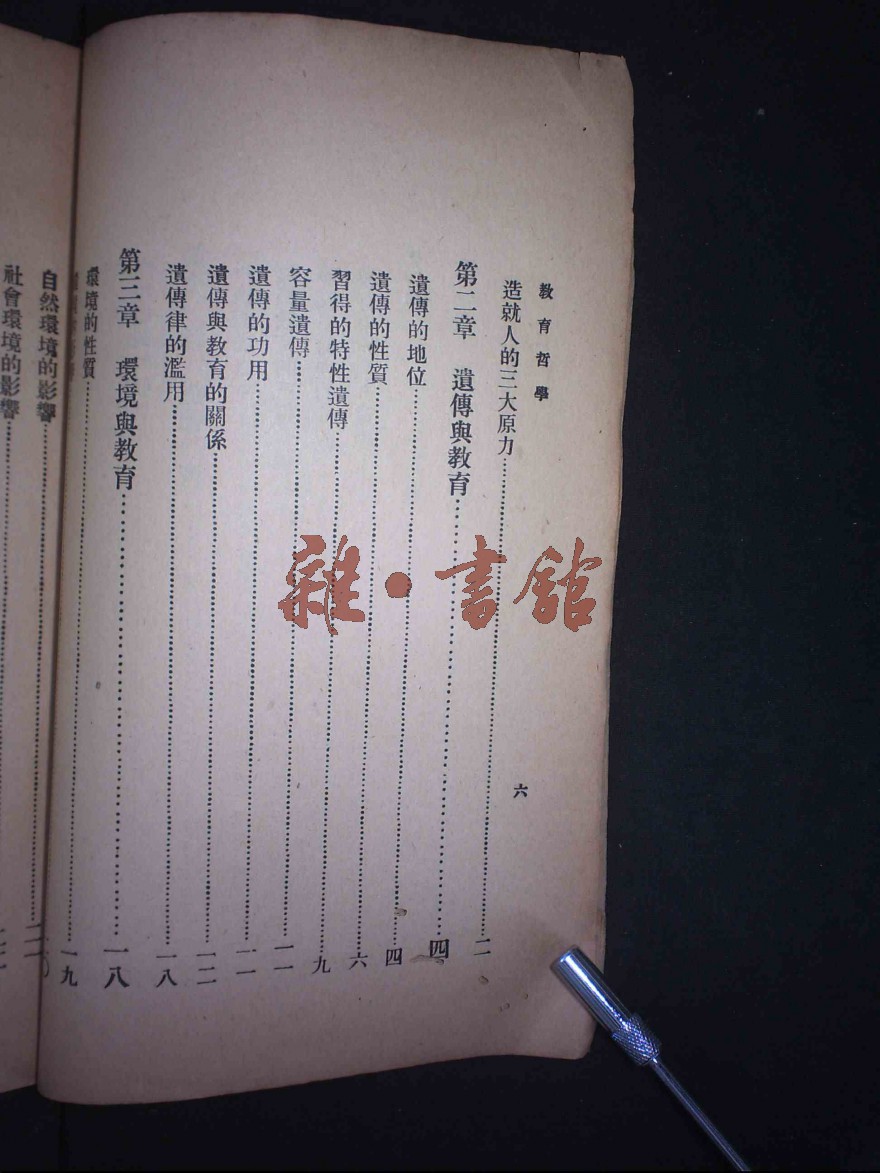 教育哲學
六
造就人的三大原力……二
第二章　遺傳與教育……四
遺傳的地位……四
遺傳的性質……六
習得的特性遺傳……九
容量遺傳……一一
遺傳的功用……一一
遺傳與教育的關係……一二
遺傳律的濫用……一八
第三章　環境與教育……一八
環境的性質……一九
自然環境的影響……二
社會環境的影響……
雜·書館